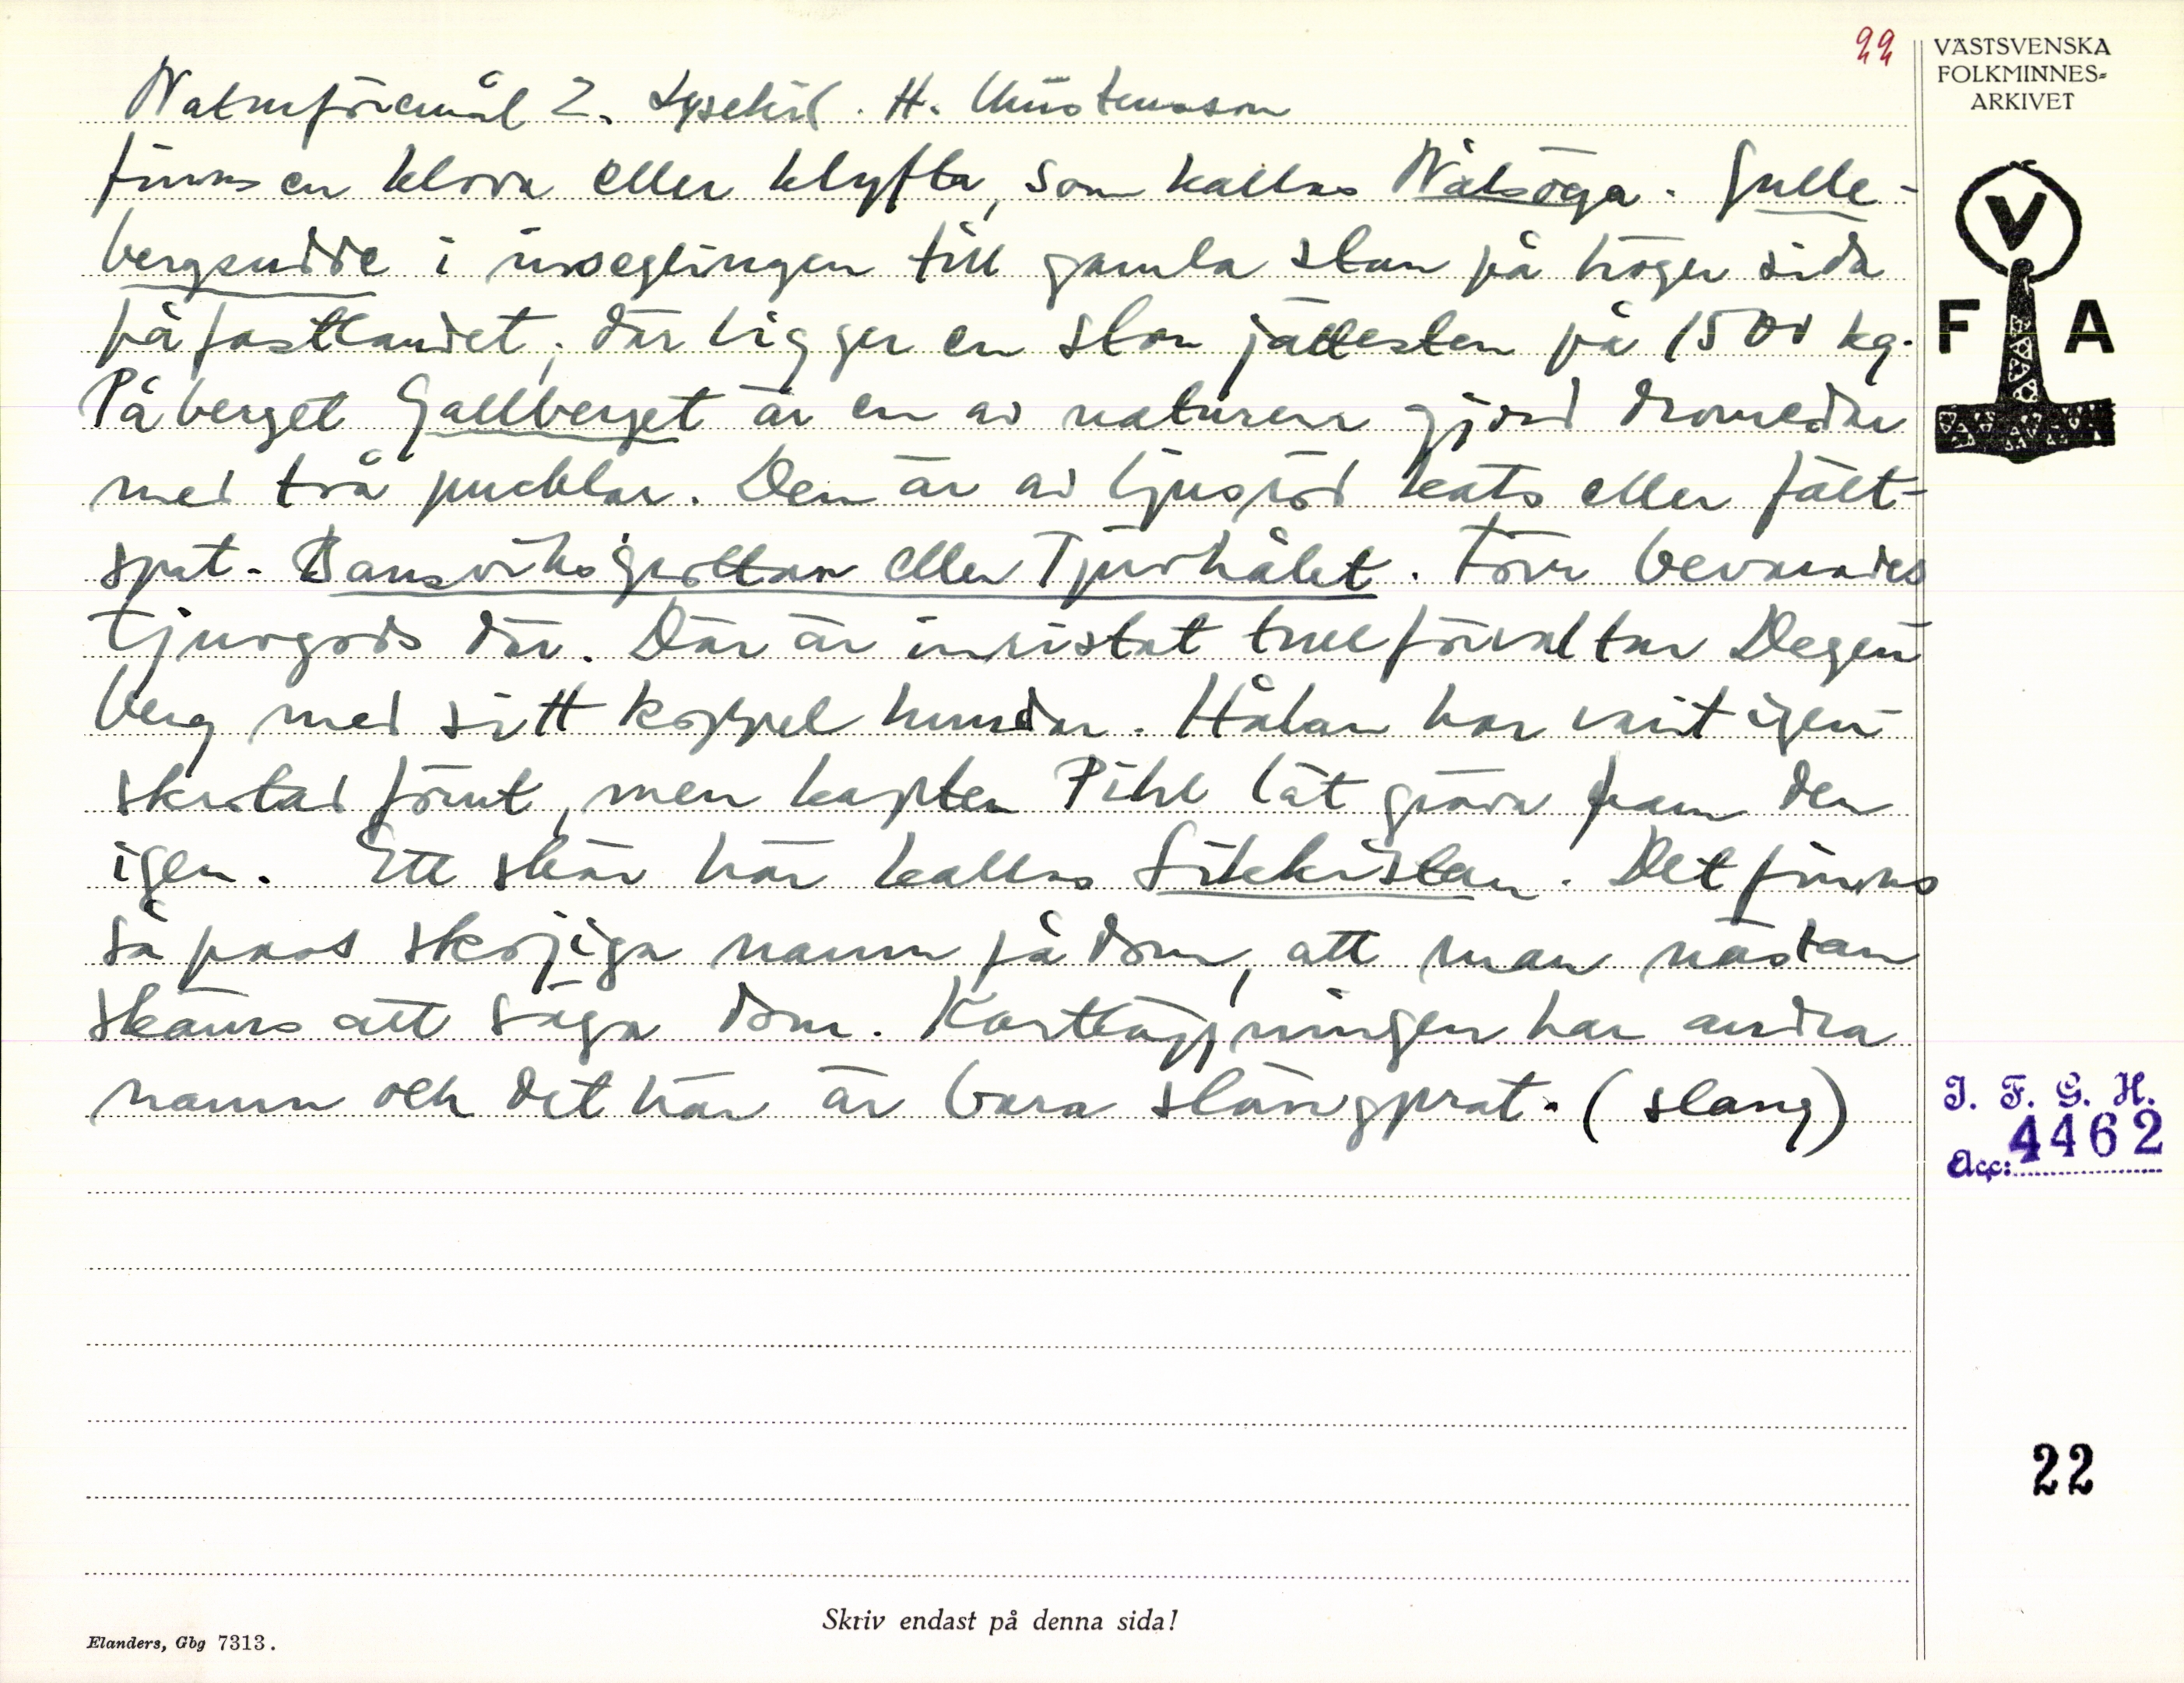 22
VÄSTSVENSKA
FOLKMINNES-
ARKIVET
Naturföremål 2. Lysekil. H. Christensson
finns en klova eller klyfta, som kallas Nålsöga. Gulle-
bergsudde i inseglingen till gamla stan på höger sida
på fastlandet, där ligger en stor jättesten på 1500 kg.
På berget Gallberget är en av naturen gjord dromedar
med två pucklar. Den är av ljusröd kats eller fält-
spat. Bansviksgrottan eller Tjuvhålet. Förr bevarades
tjuvgods där. Där är inristat tullförvaltar Degen
berg med sitt koppel hundar. Hålan har varit igen
skrotad förut, men kapten Pihl lät gräva fram den
igen. Ett skär här kallas Likkistan. Det finns
så pass skojiga namn på dom, att man nästan
skäms att säga dom. Kartläggningen har andra
namn och det här är bara slängprat. (slang)
V
F A
I. F. G. H.
Acc: 4462
22
Skriv endast på denna sida!
Elanders, Gbg 7313.